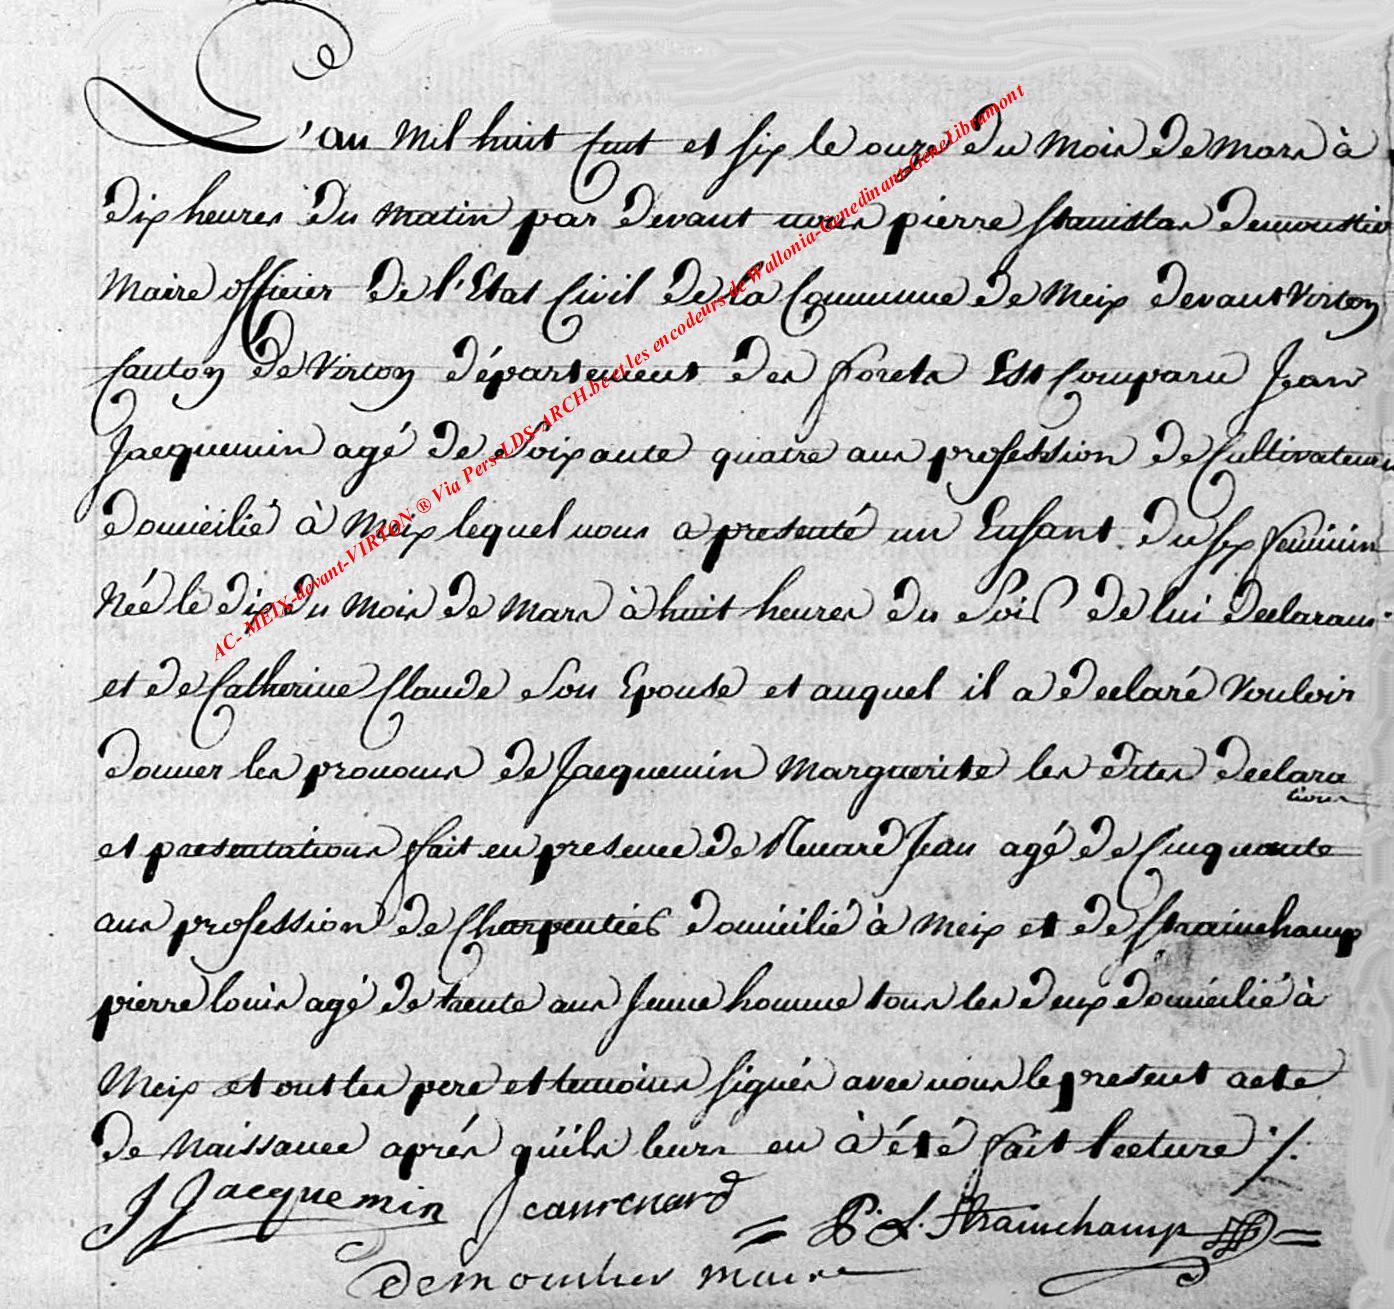 L'an Mil huit Cent et six le onze du Mois de Mars à
dix heures du Matin par devant nous pierre Stanislas demoustier
Maire officier de l'Etat Civil de la Commune de Meix devant Virton
Canton de Virton département des forets Est Comparu Jean
Jacquemin agé de Soixante quatre ans profession de Cultivateur
domicilié à Meix lequel nous a presenté un Enfant du sex feminin
Née le dix du Mois de Mars à huit heures du Soir de lui declarant
et de Catherine Claude Son Epouse et auquel il a declaré Vouloir
donner les pronoms de Jacquemin Marguerite les dites declara
tions
et presentations fait en presence de Renard Jean agé de Cinquante
ans profession de Charpentier domicilié à Meix et de Strainchamp
pierre louis agé de trente ans Jeune homme tous les deux domicilié à
Meix et ont les pere et temoins signés avec nous le present acte
de Naissance aprés qu'ils leurs en à été fait lecture ·/.
J Jacquemin Jean renard
= P. L. Strainchamp =
demoustier maire
AC- MEIX-devant-VIRTON ® Via Pers-LDS-ARCH.be et les encodeurs de Wallonia-Genedinant-GeneLibramont